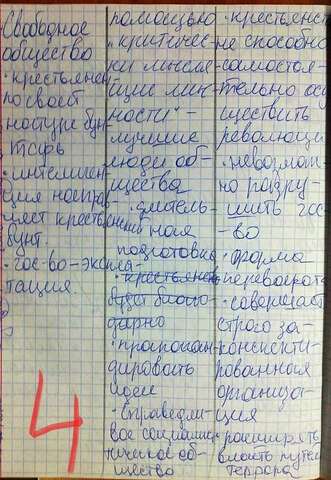 Свободное
общество
· крестьянин
по своей
натуре бун-
тарь
· интеллиген-
ция направ-
ляет крестьянский
бунт.
· гос-во - эксплуа-
тация.
помощью
"критичес-
ки мысля-
щие лич-
ности" -
лучшие
люди об-
щества
· длитель-
ная
подготовка
· крестьянство
будет благо-
дарно
· пропаган-
дировать
идеи
· справедли-
вое социалис-
тическое об-
щество
· крестьянс
не способно
самостоя-
тельно осу
ществить
революци
· невозмож-
но разру-
шить гос
-во
· форма
переворота
· совершает
строго за-
конспекти-
рованная
организа-
ция
· расширять
власть путём
террора
4